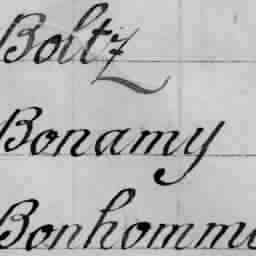 Boltz
Bonamy
Bonhomme